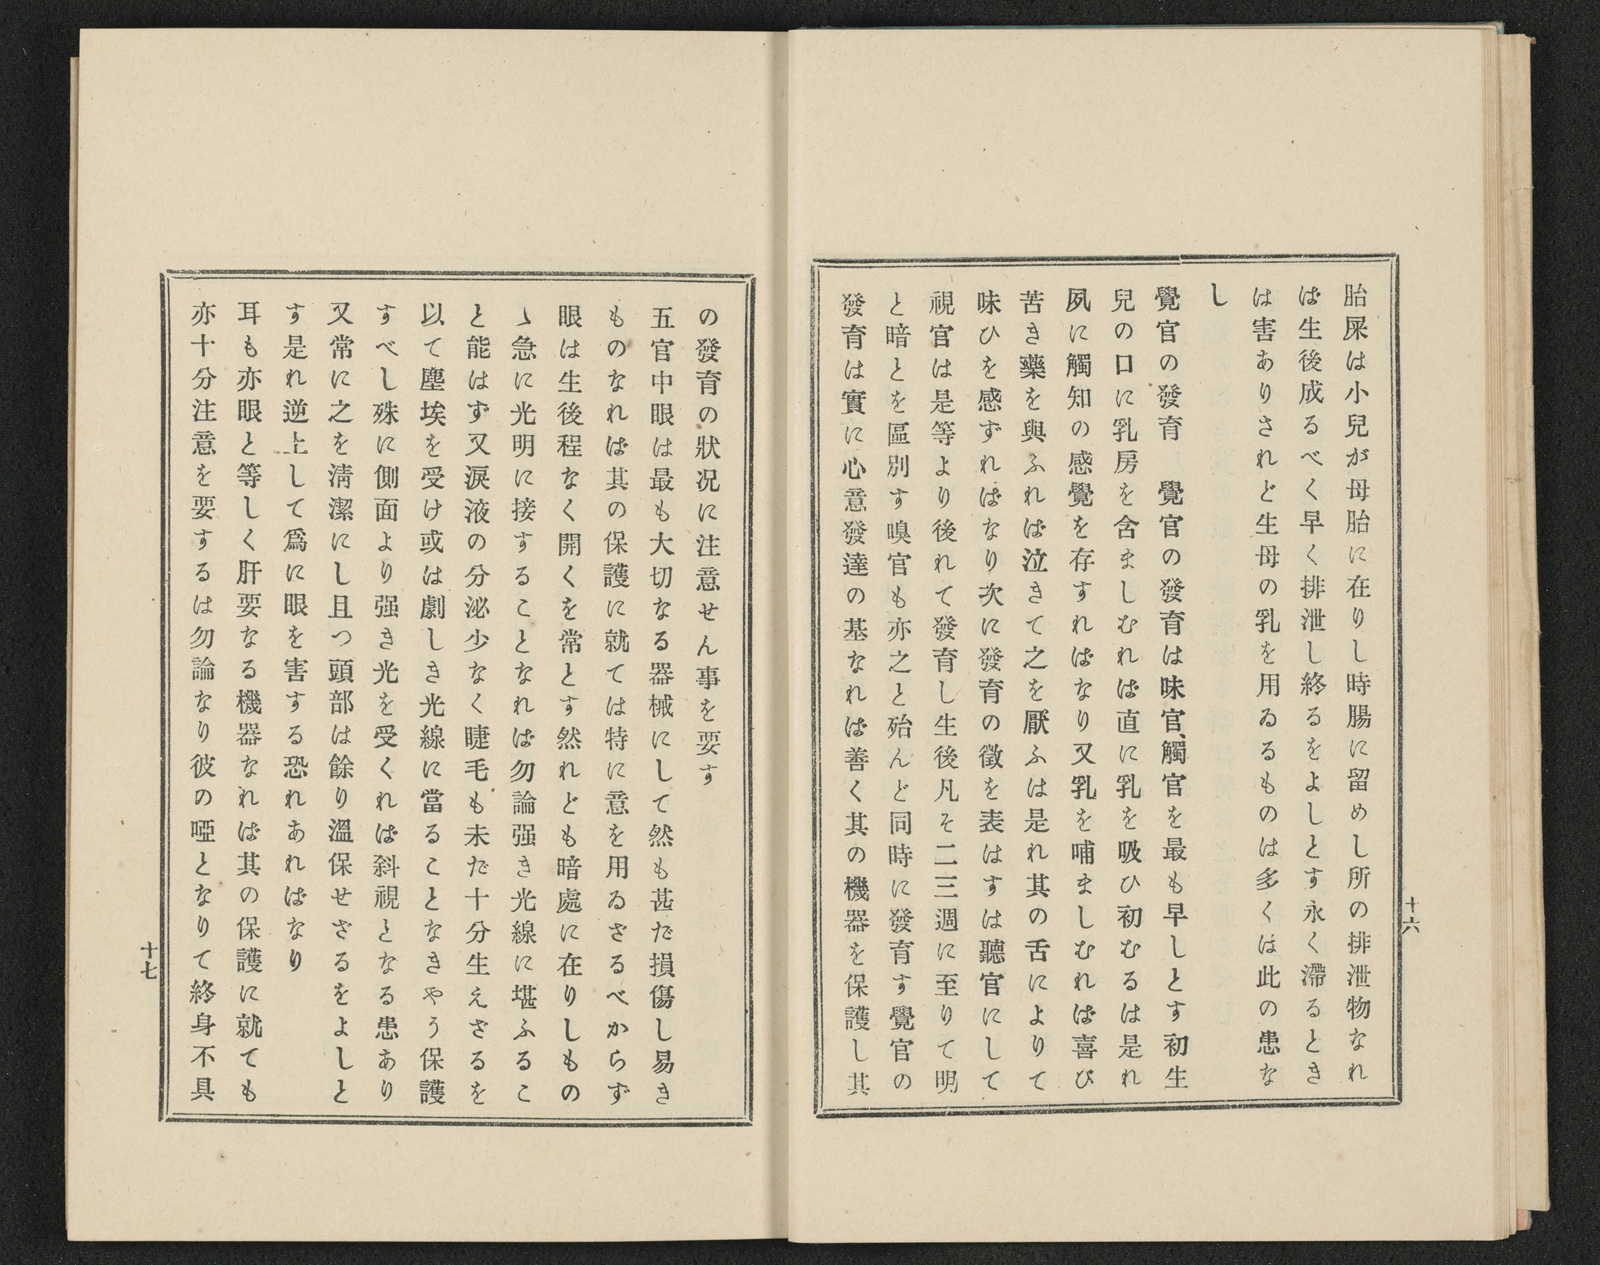 胎屎は小兒が母胎に在りし時腸に留めし所の排泄物なれ
ば生後成るべく早く排泄し終るをよしとす永く滯るとき
は害ありされど生母の乳を用ゐるものは多くは此の患な
し
覺官の發育　覺官の發育は味官、觸官を最も早しとす初生
兒の口に乳房を含ましむれば直に乳を吸ひ初むるは是れ
夙に觸知の感覺を存すればなり又乳を哺ましむれば喜び
苦き藥を與ふれば泣きて之を厭ふは是れ其の舌によりて
味ひを感ずればなり次に發育の徴を表はすは聽官にして
視官は是等より後れて發育し生後凡そ二三週に至りて明
と暗とを區別す嗅官も亦之と殆んど同時に發育す覺官の
發育は實に心意發達の基なれば善く其の機器を保護し其
十六
の發育の狀况に注意せん事を要す
五官中眼は最も大切なる器械にして然も甚だ損傷し易き
ものなれば其の保護に就ては特に意を用ゐざるべからず
眼は生後程なく開くを常とす然れども暗處に在りしもの
ゝ急に光明に接することなれば勿論强き光線に堪ふるこ
と能はず又淚液の分泌少なく睫毛も未だ十分生えざるを
以て塵埃を受け或は劇しき光線に當ることなきやう保護
すべし殊に側面より强き光を受くれば斜視となる患あり
又常に之を淸潔にし且つ頭部は餘り溫保せざるをよしと
す是れ逆上して爲に眼を害する恐れあればなり
耳も亦眼と等しく肝要なる機器なれば其の保護に就ても
亦十分注意を要するは勿論なり彼の啞となりて終身不具
十七